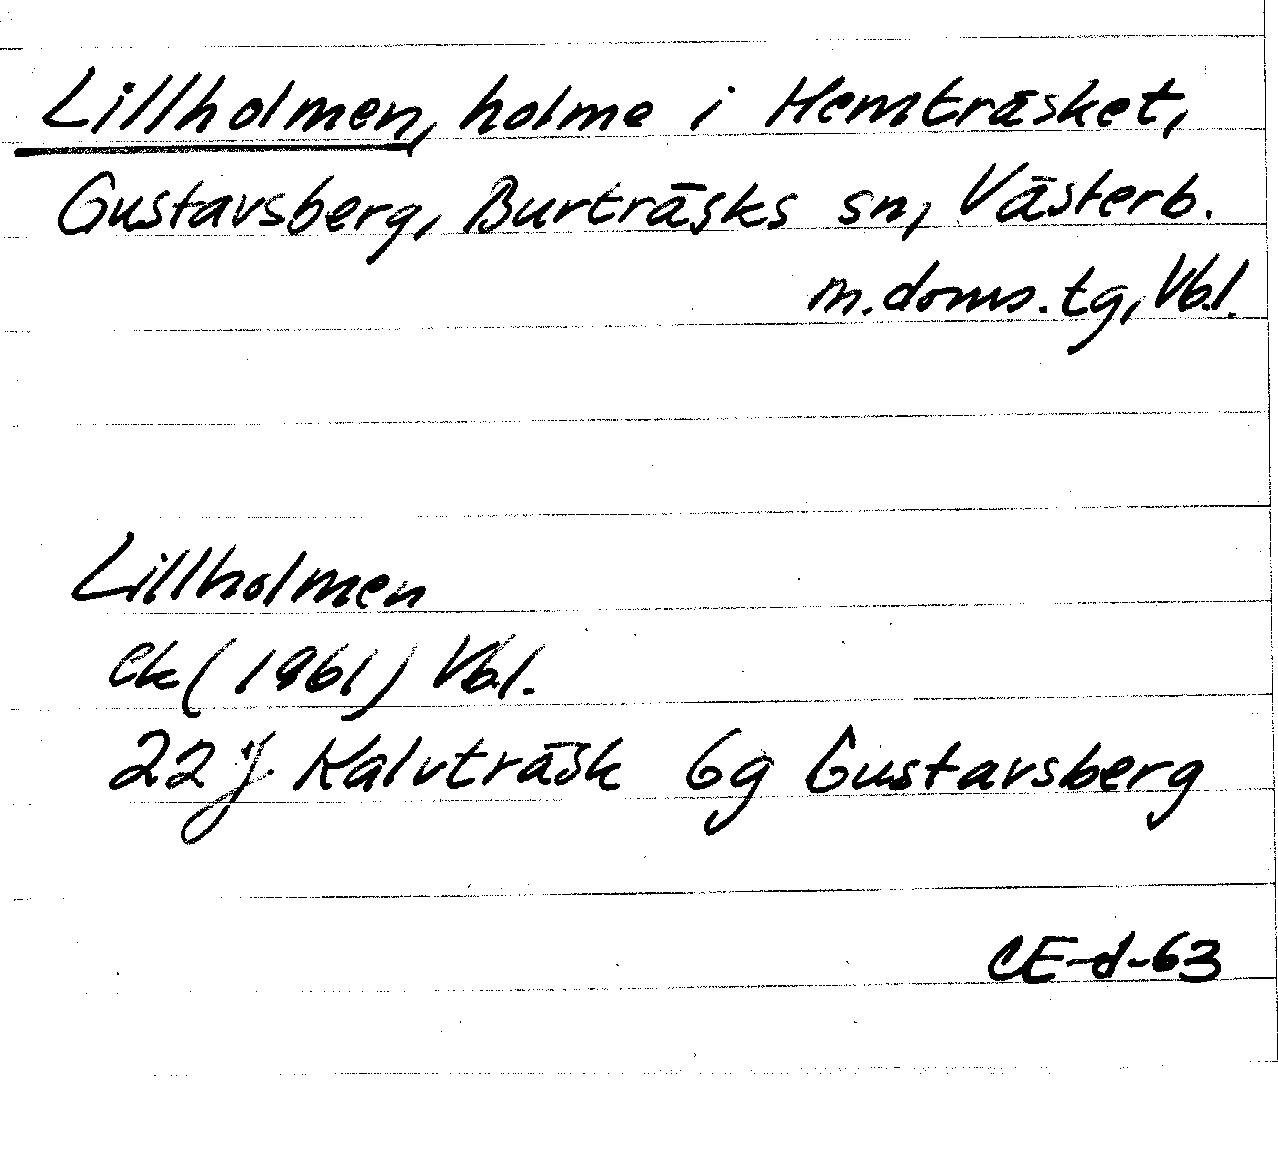 Lillholmen, holme i Hemträsket,
Gustavsberg, Burträsks sn, Västerb.
m.doms.tg, Vbl.
Lillholmen
ek (1961) Vbl.
22 J Kalvträsk 6g Gustavsberg
CE-d-63